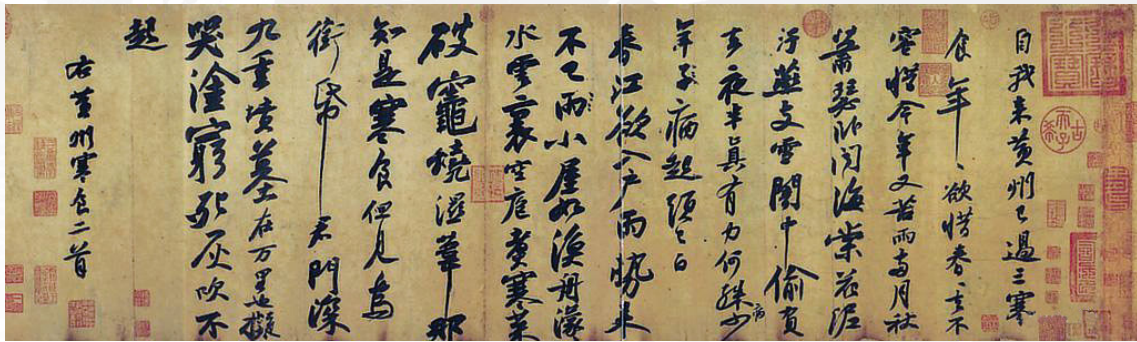 自我来黄州已過三寒
食年〻欲惜春〻去不
容惜今年又苦雨两月秋
蕭瑟卧聞海棠花泥
汙燕支雪闇中偷負
去夜半真有力何殊少
年子病起須已白
春江欲入户雨勢来
不已雨小屋如漁舟濛
水雲裏空庖煮寒菜
破竈燒濕葦那
知是寒食但見烏
銜帋君門深
九重墳墓在万里也擬
哭塗窮死灰吹不
起
右黄州寒食二首